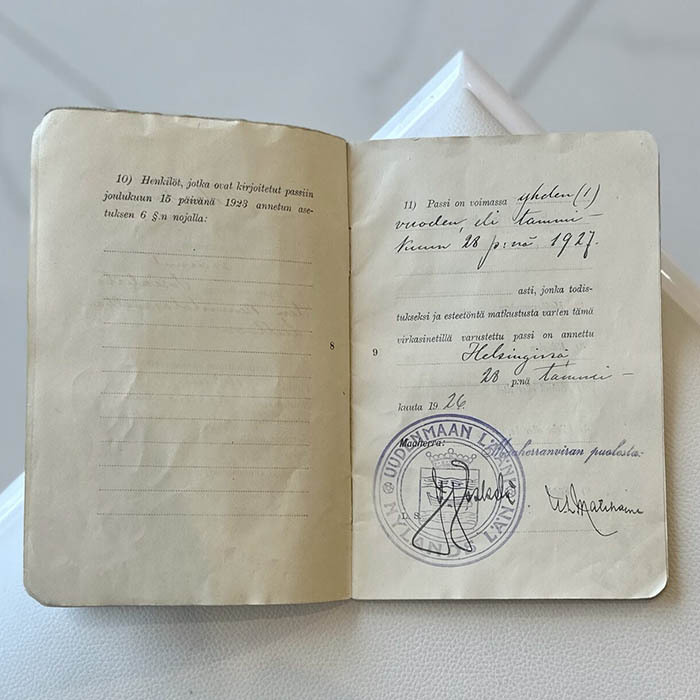 10) Henkilöt, jotka ovat kirjoitetut passiin
joulukuun 15 päivänä 1923 annetun ase-
tuksen 6 §:n nojalla:
8
9
11) Passi on voimassa yhden (1)
vuoden, eli tammi-
kuun 28 p:nä 1927.
asti, jonka todis-
tukseksi ja esteetöntä matkustusta varten tämä
virkasinetillä varustettu passi on annettu
Helsingissä,
28 p:nä tammi-
kuuta 1926.
Maaherra:
Maaherranviran puolesta:
UUDENMAAN LÄÄNI
NYLANDS LÄN
L. S.